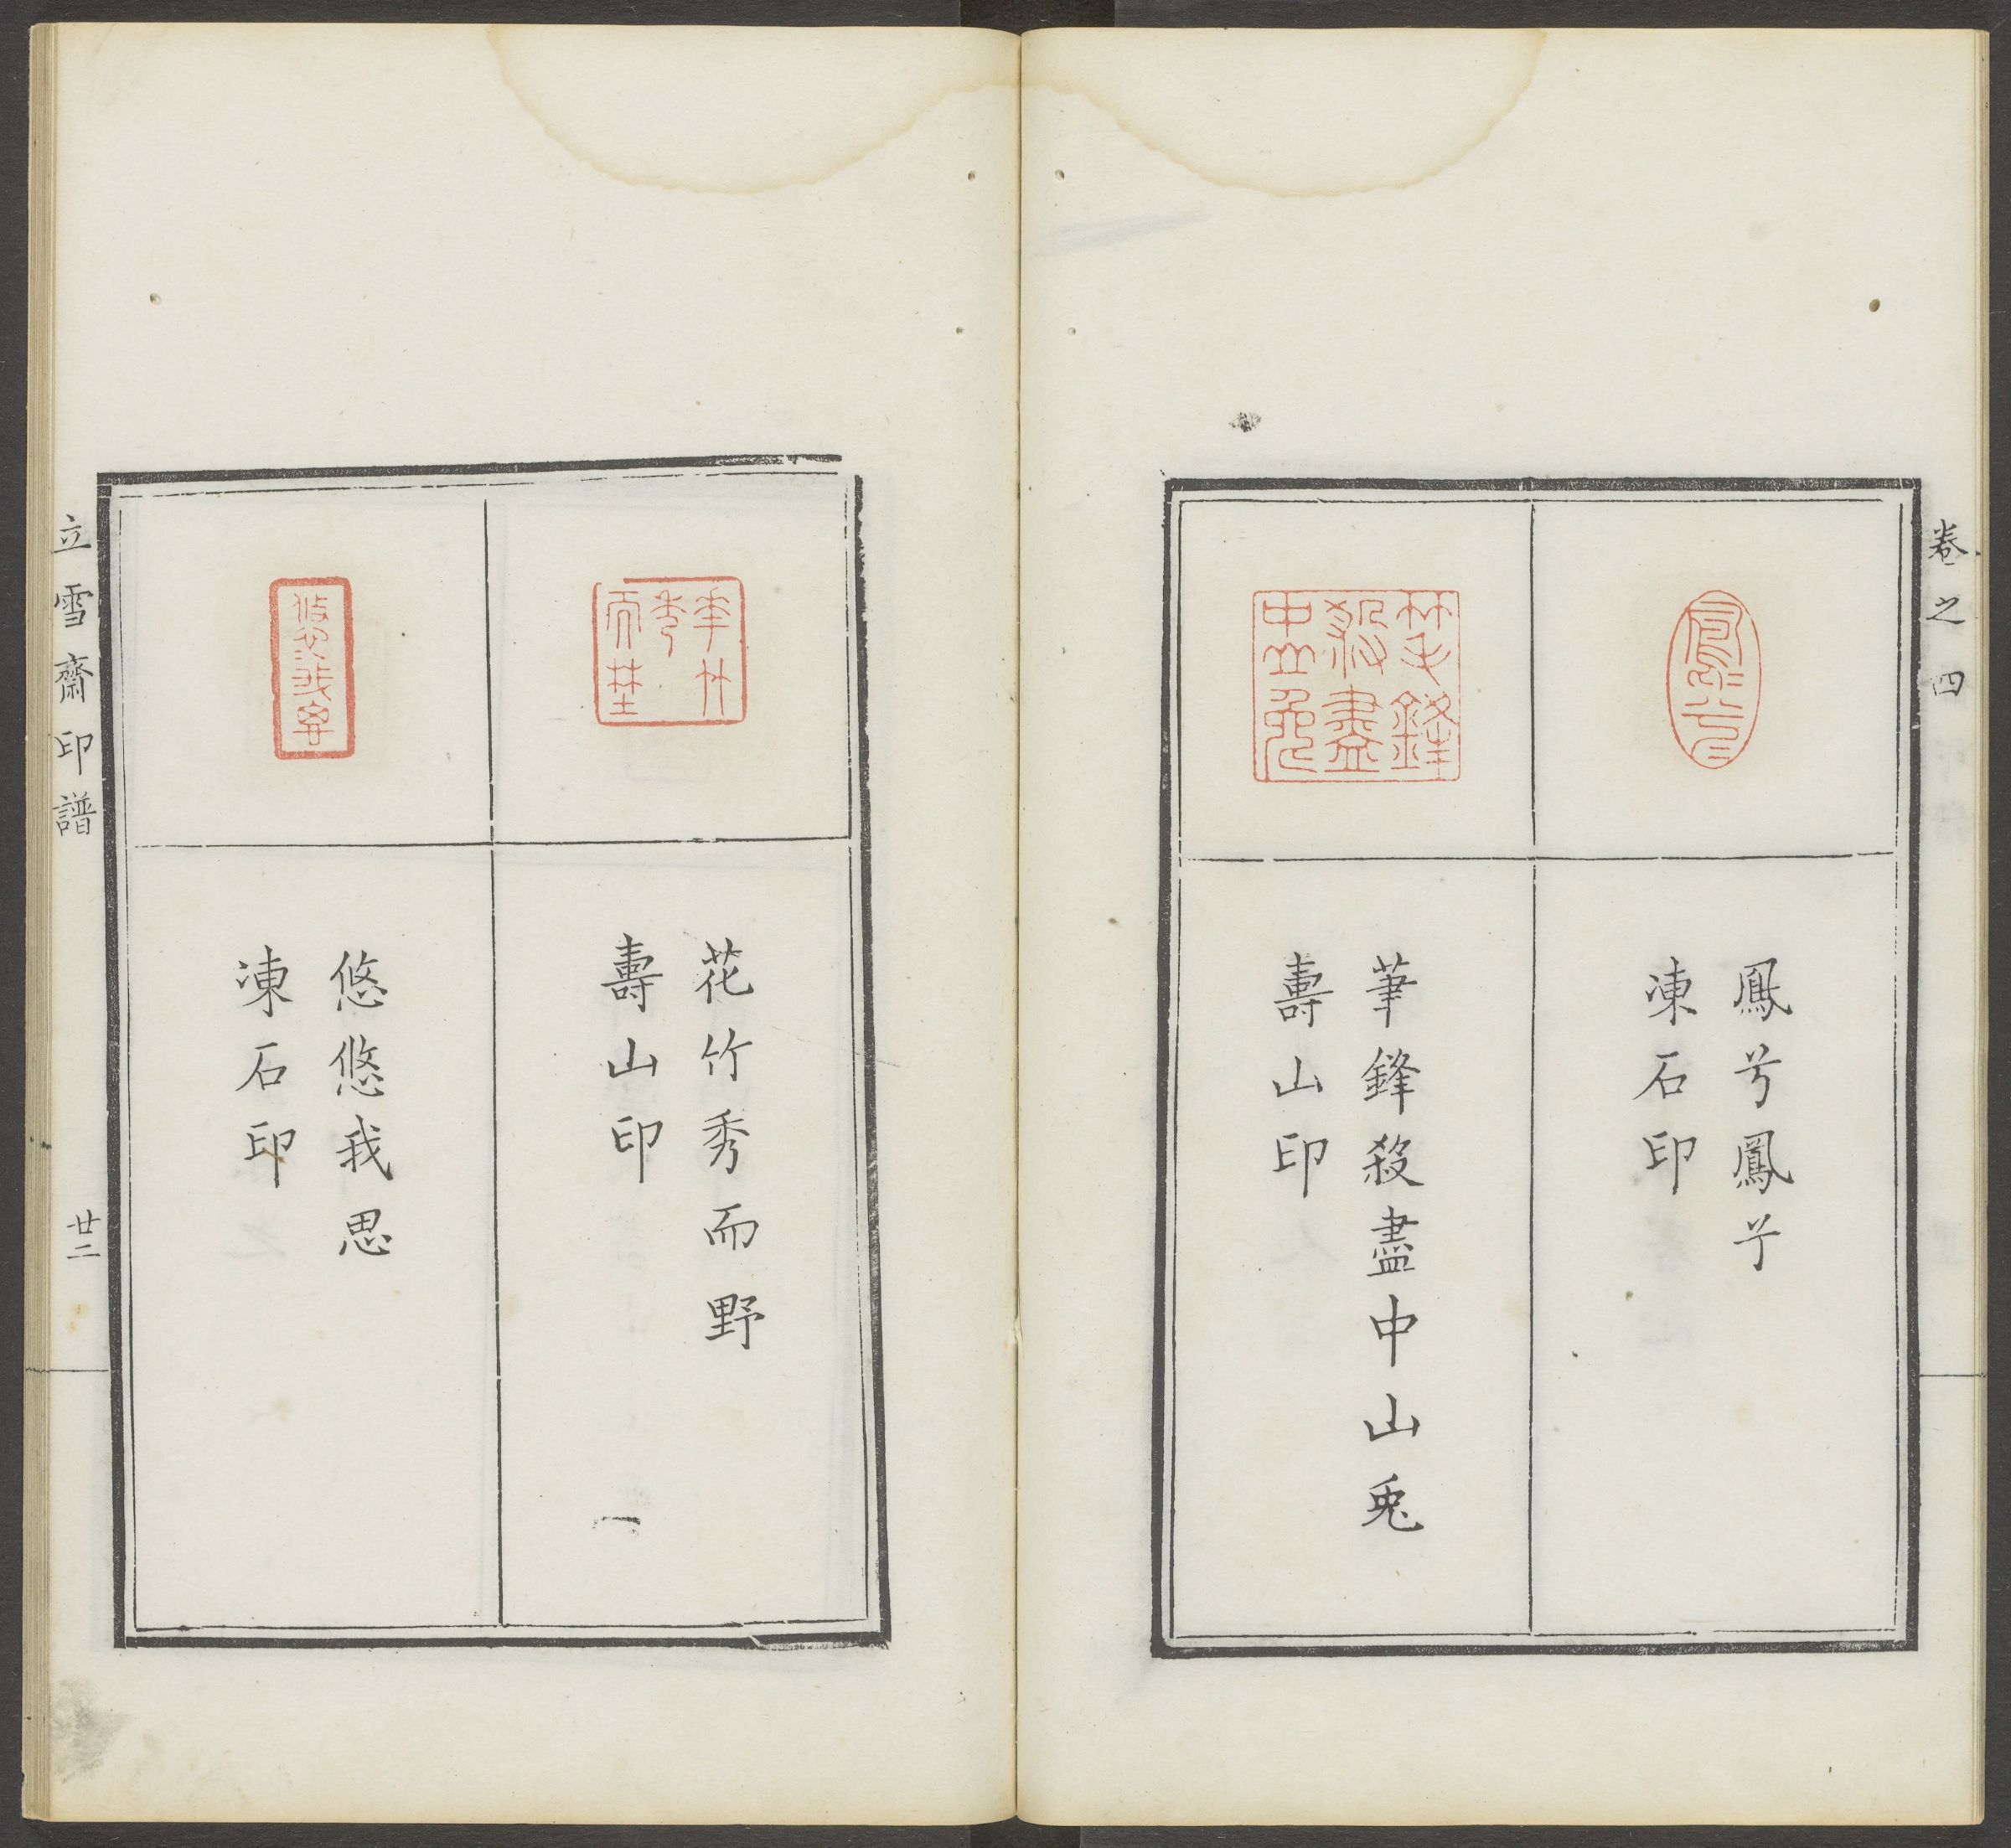 卷之四
鳳兮鳳兮
凍石印
筆鋒殺盡中山兎
壽山印
花竹秀而野
壽山印
悠悠我思
凍石印
立雪齋印譜
廿二